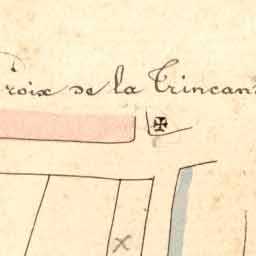 roix de la Trincan